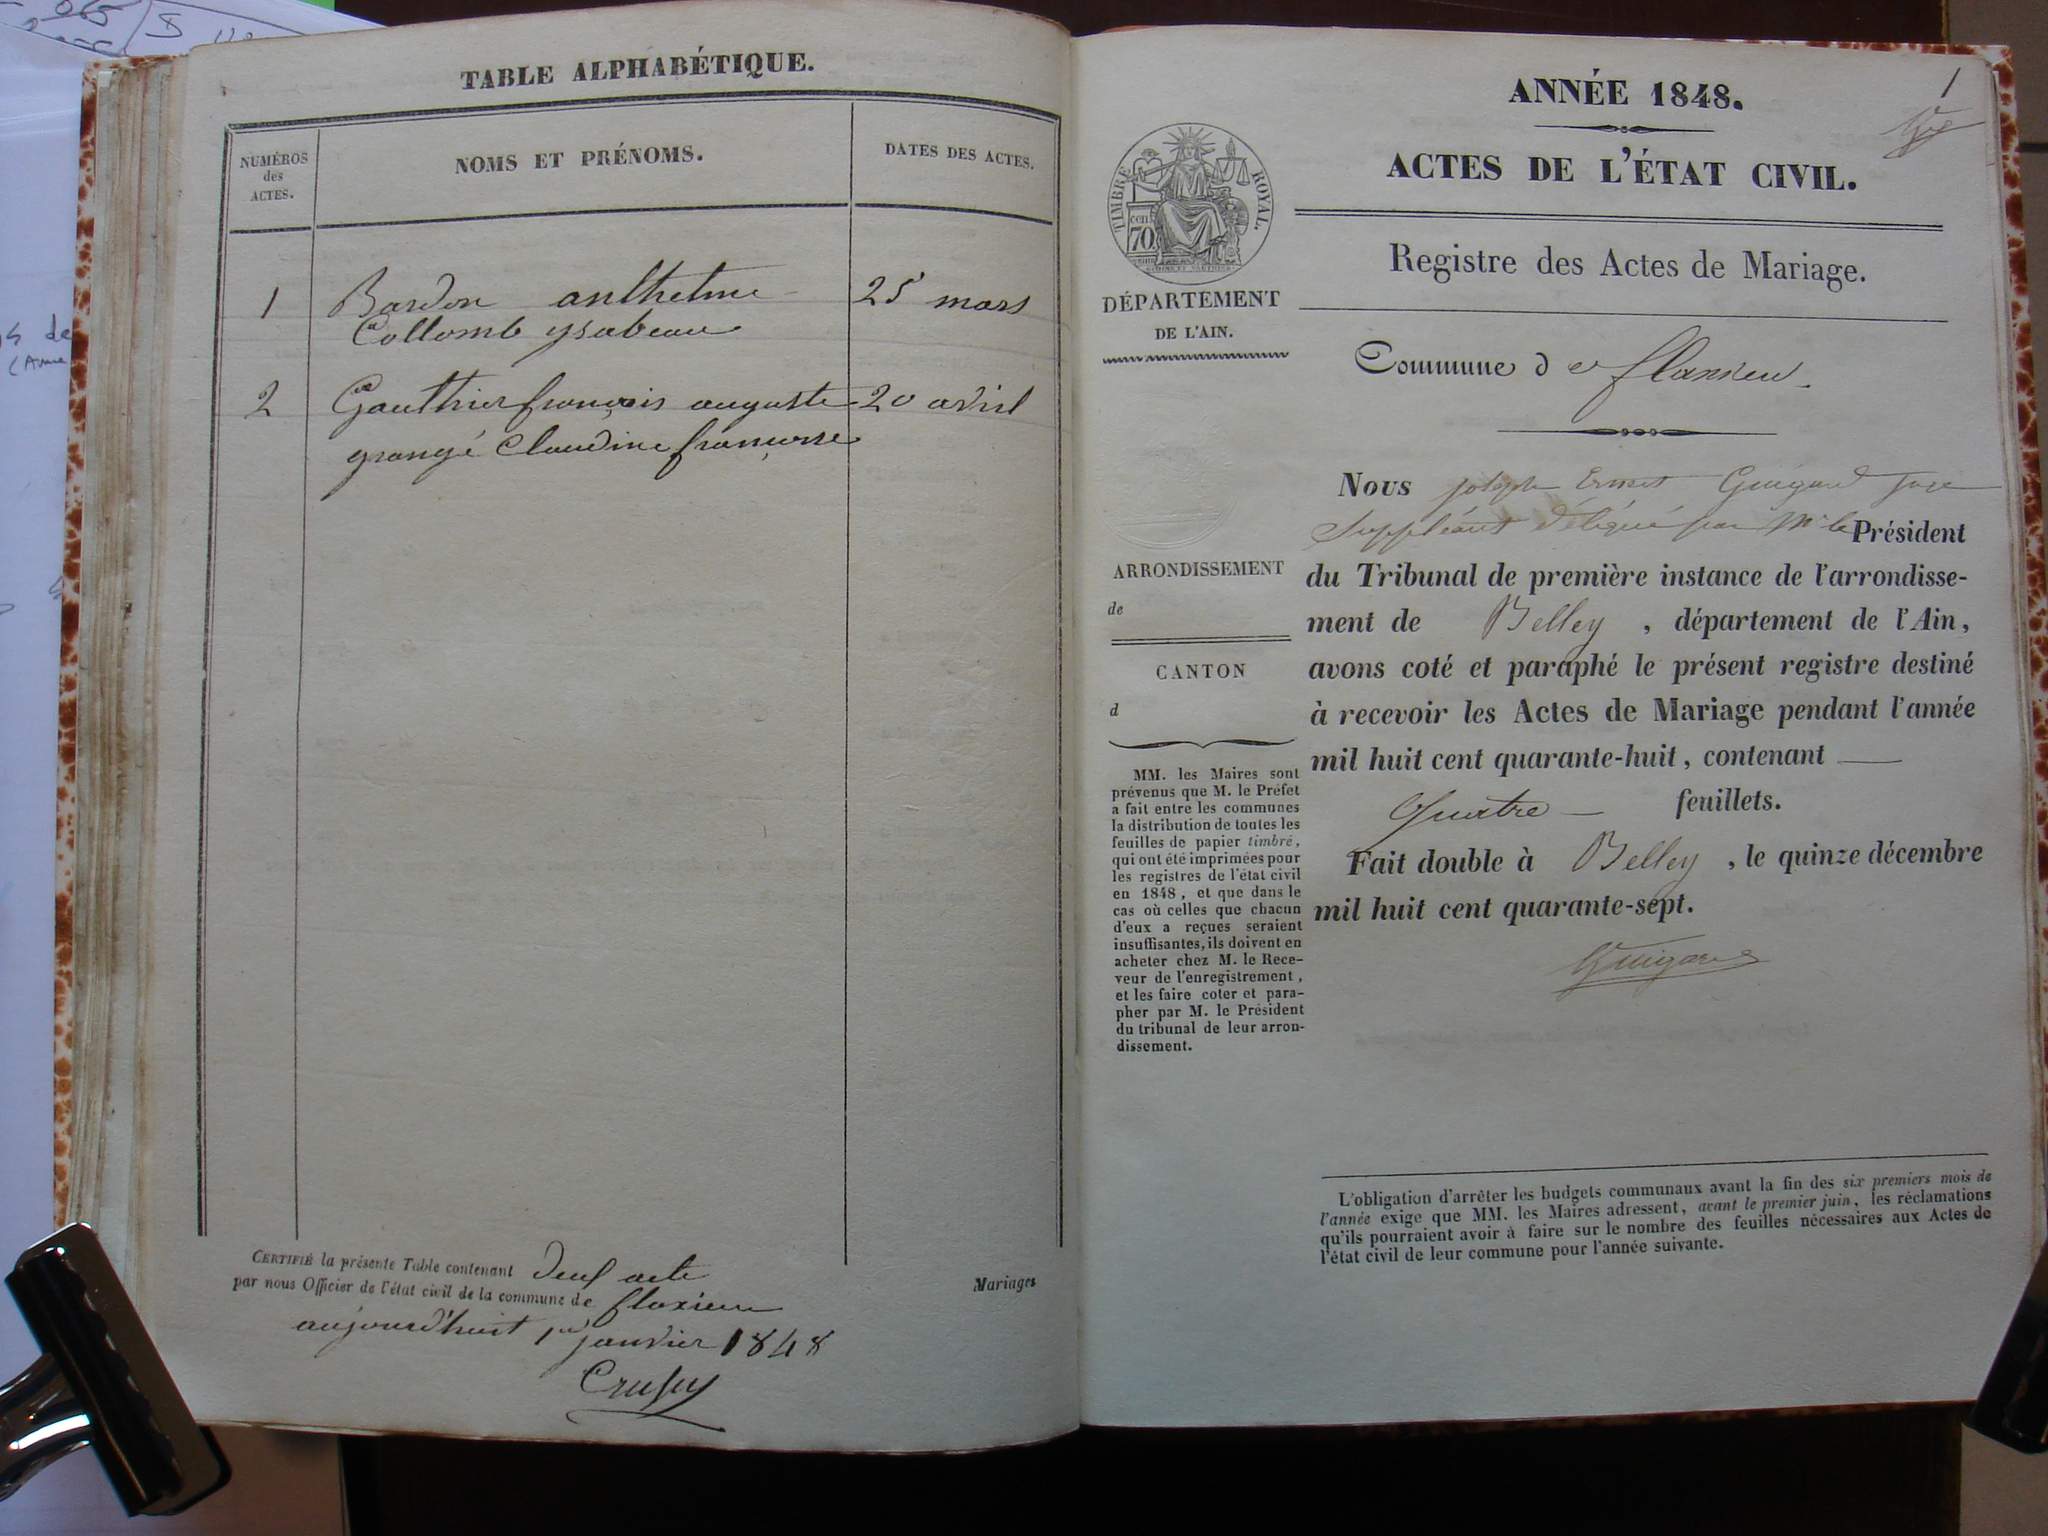 TABLE ALPHABÉTIQUE.
NUMÉROS
des
ACTES.
NOMS ET PRÉNOMS.
DATES DES ACTES.
1 Bardon anthelme 25 mars
Collomb ysabeau
2 Gauthier françois auguste 20 avril
grangé Claudine françoise
CERTIFIÉ la présente Table contenant deux acte
par nous Officier de l'état civil de la commune de flaxieu
aujourd'huit 1er janvier 1848
Mariages
1
ANNÉE 1848.
ACTES DE L'ÉTAT CIVIL.
TIMBRE ROYAL.
cen
70
Registre des Actes de Mariage.
DÉPARTEMENT
DE L'AIN.
Commune de flaxieu.
ARRONDISSEMENT
de
CANTON
d
MM. les Maires sont
prévenus que M. le Préfet
a fait entre les communes
la distribution de toutes les
feuilles de papier timbré,
qui ont été imprimées pour
les registres de l'état civil
en 1848, et que dans le
cas où celles que chacun
d'eux a reçues seraient
insuffisantes, ils doivent en
acheter chez M. le Rece-
veur de l'enregistrement,
et les faire coter et para-
pher par M. le Président
du tribunal de leur arron-
dissement.
Nous joseph Ernest Guigard Juge
Suppléant délégué par Mr le Président
du Tribunal de première instance de l'arrondisse-
ment de Belley, département de l'Ain,
avons coté et paraphé le présent registre destiné
à recevoir les Actes de Mariage pendant l'année
mil huit cent quarante-huit, contenant
Quatre feuillets.
Fait double à Belley, le quinze décembre
mil huit cent quarante-sept.
Guigard
L'obligation d'arrêter les budgets communaux avant la fin des six premiers mois de
l'année exige que MM. les Maires adressent, avant le premier juin, les réclamations
qu'ils pourraient avoir à faire sur le nombre des feuilles nécessaires aux Actes de
l'état civil de leur commune pour l'année suivante.